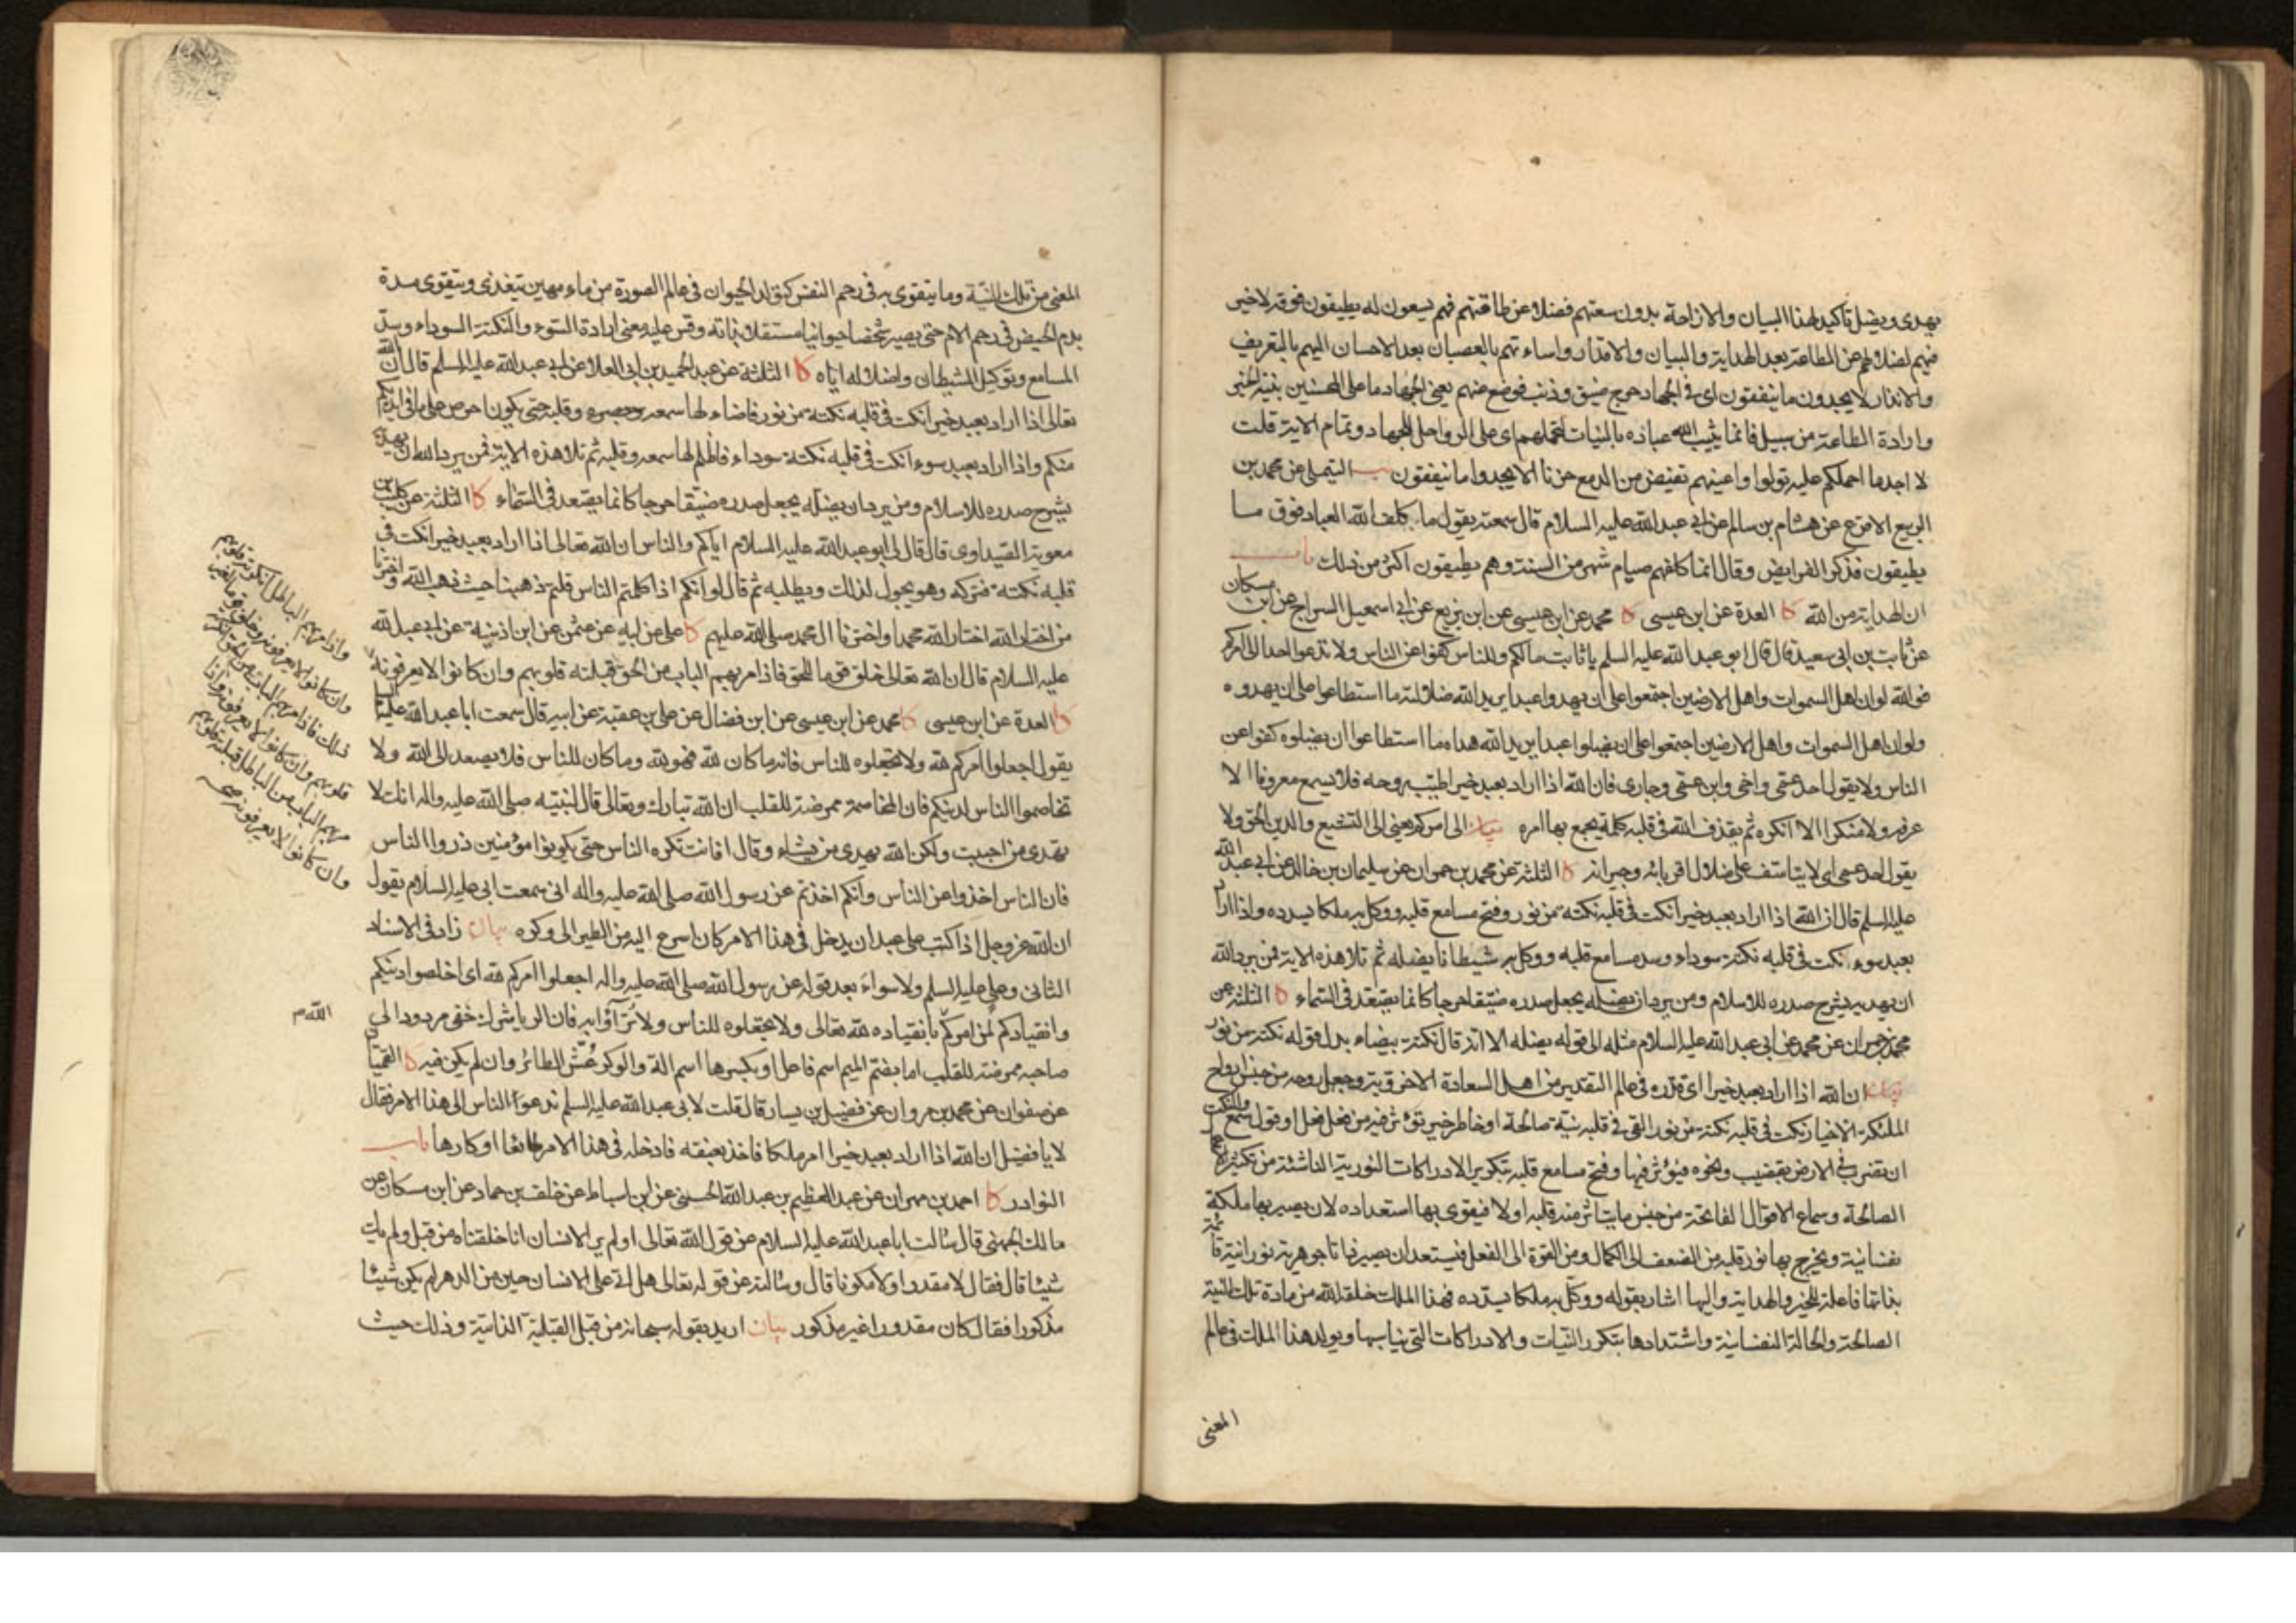 يهدى ويضل تاكيد لهذا البيان والازاحة بدون سعتهم فضلا عن طاقتهم فهم يسعون له يطيقون فوقه لاخير
فيهم لضلالهم عن الطاعة بعد الهداية والبيان والاقدار واساءتهم بالعصيان بعد الاحسان اليهم بالتعريف
والانذار لا يجدون ما ينفقون اى فى الجهاد حرج ضيق وذنب فوضع عنهم يعنى الجهاد ما على المحسنين بنية الخير
وارادة الطاعة من سبيل فانما يثيب الله عباده بالنيات لتحملهم اى على الرواحل للجهاد وتمام الاية قلت
لا اجد ما احملكم عليه تولوا واعينهم تفيض من الدمع حزنا الا يجدوا ما ينفقون يب التيملى عن محمد بن
الربيع الاقرع عن هشام بن سالم عن ابى عبد الله عليه السلام قال سمعته يقول ما كلف الله العباد فوق ما
يطيقون فذكر الفرايض وقال انما كلفهم صيام شهر من السنة وهم يطيقون اكثر من ذلك باب
ان الهداية من الله كا العدة عن ابن عيسى كا محمد عن ابن عيسى عن ابن بزيع عن ابى اسمعيل السراج عن ابن مسكان
عن ثابت بن ابى سعيد قال قال ابو عبد الله عليه السلم يا ثابت ما لكم وللناس كفوا عن الناس ولا تدعوا احدا الى امركم
فوالله لو ان اهل السموات واهل الارضين اجتمعوا على ان يهدوا عبدا يريد الله ضلالته ما استطاعوا على ان يهدوه
ولو ان اهل السموات واهل الارضين اجتمعوا على ان يضلوا عبدا يريد الله هداه ما استطاعوا ان يضلوه كفوا عن
الناس ولا يقول احد عمى واخى وابن عمى وجارى فان الله اذا اراد بعبد خيرا طيب روحه فلا يسمع معروفا الا
عرفه ولا منكرا الا انكره ثم يقذف الله فى قلبه كلمة يجمع بها امره بيان الى امركم يعنى الى التشيع والدين الحق ولا
يقول احد عمى اى لا يتاسف على ضلال اقربائه وجيرانه كا الثلثة عن محمد بن حمران عن سليمان بن خالد عن ابى عبد الله
عليه السلم قال ان الله اذا اراد بعبد خيرا نكت فى قلبه نكتة من نور وفتح مسامع قلبه ووكل به ملكا يسدده واذا اراد
بعبد سوء نكت فى قلبه نكتة سوداء وسد مسامع قلبه ووكل به شيطانا يضله ثم تلا هذه الاية فمن يرد الله
ان يهديه يشرح صدره للاسلام ومن يرد ان يضله يجعل صدره ضيقا حرجا كانما يصعد فى السماء كا الثلثة عن
محمد بن حمران عن محمد عن ابى عبد الله عليه السلام مثله الى قوله يضله الا انه قال نكتة بيضاء بدل قوله نكتة من نور
بيان ان الله اذا اراد بعبد خيرا اى قدره فى عالم التقدير من اهل السعادة الاخروية وجعل روحه من جنس ارواح
الملئكة الاخيار نكت فى قلبه نكتة من نور القى فى قلبه نية صالحة او خاطر خير تؤثر فيه من فعل فعل او قول سمع والنكت
ان تضرب فى الارض بقضيب ونحوه فيؤثر فيها وفتح مسامع قلبه بتكرير الادراكات النورية الناشئة من تكثير
الصالحة وسماع الاقوال الفاتحة من جنس ما يتاثر منه قلبه اولا فيقوى بها استعداده لان يصير بها ملكة
نفسانية ويخرج بها نور قلبه من الضعف الى الكمال ومن القوة الى الفعل فيستعد ان يصير ذاتا جوهرية نورانية قائمة
بذاتها فاعلة للخير والهداية واليها اشار بقوله ووكل به ملكا يسدده فهذا الملك خلقه الله من مادة تلك النية
الصالحة والحالة النفسانية واشتدادها بتكرر النيات والادراكات التى يناسبها ويولد هذا الملك فى عالم
المعنى
المعنى من تلك النية وما يتقوى به فى رحم النفس كتولد الحيوان فى عالم الصورة من ماء مهين يتغذى ويتقوى مدة
بدم الحيض فى رحم الام حتى يصير شخصا حيوانيا مستقلا بذاته وقس عليه معنى ارادة السوء والنكتة السوداء وسد
المسامع وتوكيل الشيطان واضلاله اياه كا الثلثة عن عبد الحميد بن ابى العلا عن ابى عبد الله عليه السلم قال ان الله
تعالى اذا اراد بعبد خيرا نكت فى قلبه نكتة من نور فاضاء لها سمعه وبصره وقلبه حتى يكون احرص على ما فى ايديكم
منكم واذا اراد بعبد سوء نكت فى قلبه نكتة سوداء فاظلم لها سمعه وقلبه ثم تلا هذه الاية فمن يرد الله ان يهديه
يشرح صدره للاسلام ومن يرد ان يضله يجعل صدره ضيقا حرجا كانما يصعد فى السماء كا الثلثة عن كليب بن
معوية الصيداوى قال قال لى ابو عبد الله عليه السلام اياكم والناس ان الله تعالى اذا اراد بعبد خيرا نكت فى
قلبه نكتة فتركه وهو يجول لذلك ويطلبه ثم قال لو انكم اذا كلمتم الناس قلتم ذهبنا حيث ذهب الله واخترنا
من اختار الله اختار الله محمدا واخترنا ال محمد صلى الله عليهم كا على عن ابيه عن عثمن عن ابن اذينة عن ابى عبد الله
عليه السلام قال ان الله تعالى خلق قوما للحق فاذا مر بهم الباب من الحق قبلته قلوبهم وان كانوا لا يعرفونه
كا العدة عن ابن عيسى كا محمد عن ابن عيسى عن ابن فضال عن على بن عقبة عن ابيه قال سمعت ابا عبد الله عليه السلم
يقول اجعلوا امركم لله ولا تجعلوه للناس فانه ما كان لله فهو لله وما كان للناس فلا يصعد الى الله ولا
تخاصموا الناس لدينكم فان المخاصمة ممرضة للقلب ان الله تبارك وتعالى قال لنبيه صلى الله عليه واله انك لا
تهدى من احببت ولكن الله يهدى من يشاء وقال افانت تكره الناس حتى يكونوا مؤمنين ذروا الناس
فان الناس اخذوا عن الناس وانكم اخذتم عن رسول الله صلى الله عليه واله انى سمعت ابى عليه السلام يقول
ان الله عز وجل اذا كتب على عبد ان يدخل فى هذا الامر كان اسرع اليه من الطير الى وكره بيان زاد فى الاسناد
الثانى وعلى عليه السلم ولا سواء بعد قوله عن رسول الله صلى الله عليه واله اجعلوا امركم لله اى اخلصوا دينكم
وانقيادكم لمن امركم بانقياده لله تعالى ولا تجعلوه للناس ولا ترآؤا به فان الريا شرك خفى مردود الى
صاحبه ممرضة للقلب اما بضم الميم اسم فاعل او بكسرها اسم الة والوكر عش الطائر وان لم يكن فيه كا القميان
عن صفوان عن محمد بن مروان عن فضيل بن يسار قال قلت لابى عبد الله عليه السلم ندعوا الناس الى هذا الامر فقال
لا يا فضيل ان الله اذا اراد بعبد خيرا امر ملكا فاخذ بعنقه فادخله فى هذا الامر طائعا او كارها باب
النوادر كا احمد بن مهران عن عبد العظيم بن عبد الله الحسنى عن ابن اسباط عن خلف بن حماد عن ابن مسكان عن
مالك الجهنى قال سالت ابا عبد الله عليه السلام عن قول الله تعالى اولم ير الانسان انا خلقناه من قبل ولم يك
شيئا قال فقال لا مقدرا ولا مكونا قال وسالته عن قوله تعالى هل اتى على الانسان حين من الدهر لم يكن شيئا
مذكورا فقال كان مقدورا غير مذكور بيان اريد بقوله سبحانه من قبل القبلية الذاتية وذلك حيث
واذا مر بهم الباطل انكرته قلوبهم
وان كانوا لا يعرفونه وخلق قوما لغير
ذلك فاذا مر بهم الباب من الحق انكرته
قلوبهم وان كانوا لا يعرفونه واذا
مر بهم الباب من الباطل قبلته قلوبهم
وان كانوا لا يعرفونه صح
الله م